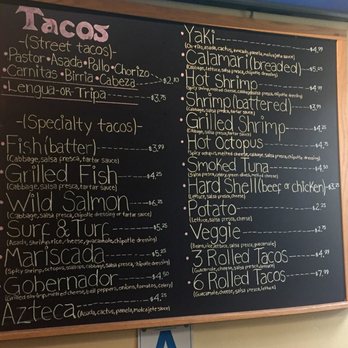 Tacos
-(Street tacos)-
• Pastor • Asada • Pollo • Chorizo
• Carnitas • Birria • Cabeza $2.10
• Lengua-OR-Tripa $3.75
-(Specialty tacos)-
• Fish (batter) $3.99
(Cabbage, salsa fresca, tartar sauce)
• Grilled Fish $4.25
(Cabbage, salsa fresca, tartar sauce)
• Wild Salmon $6.25
(Cabbage, salsa fresca, chipotle dressing or tartar)
• Surf & Turf $5.25
(Asada, shrimp, cheese, guacamole, chipotle dressing)
• Mariscada $5.25
(Spicy shrimp, octopus, salmon, cabbage, salsa fresca, chipotle dressing)
• Gobernador $4.50
(Grilled shrimp, melted cheese, bell peppers, onions, tomatoes, celery)
Azteca $4.25
(Asada, cactus, panela, molcajete sauce)
• Yaki $4.99
asada, cactus, avocado, panela, molcajete sauce)
• Calamari (breaded) $5.25
(Cabbage, lettuce, salsa fresca, chipotle dressing)
• Hot Shrimp $4.99
• Shrimp (battered) $3.99
(Cabbage, salsa fresca, tartar sauce)
• Grilled Shrimp $4.25
(Cabbage, salsa fresca, tartar sauce)
• Hot Octopus $4.75
(Spicy octopus, melted cheese, cabbage, salsa fresca, chipotle dressing)
• Smoked Tuna $4.50
• Hard Shell (beef or chicken)
(Lettuce, salsa fresca, cheese)
• Potato $2.25
(Lettuce, salsa fresca, cheese)
• Veggie $2.75
(Beans, rice, lettuce, salsa fresca, guacamole)
• 3 Rolled Tacos $4.99
(Guacamole, cheese, salsa fresca, lettuce)
• 6 Rolled Tacos $7.99
(Guacamole, cheese, salsa fresca, lettuce)